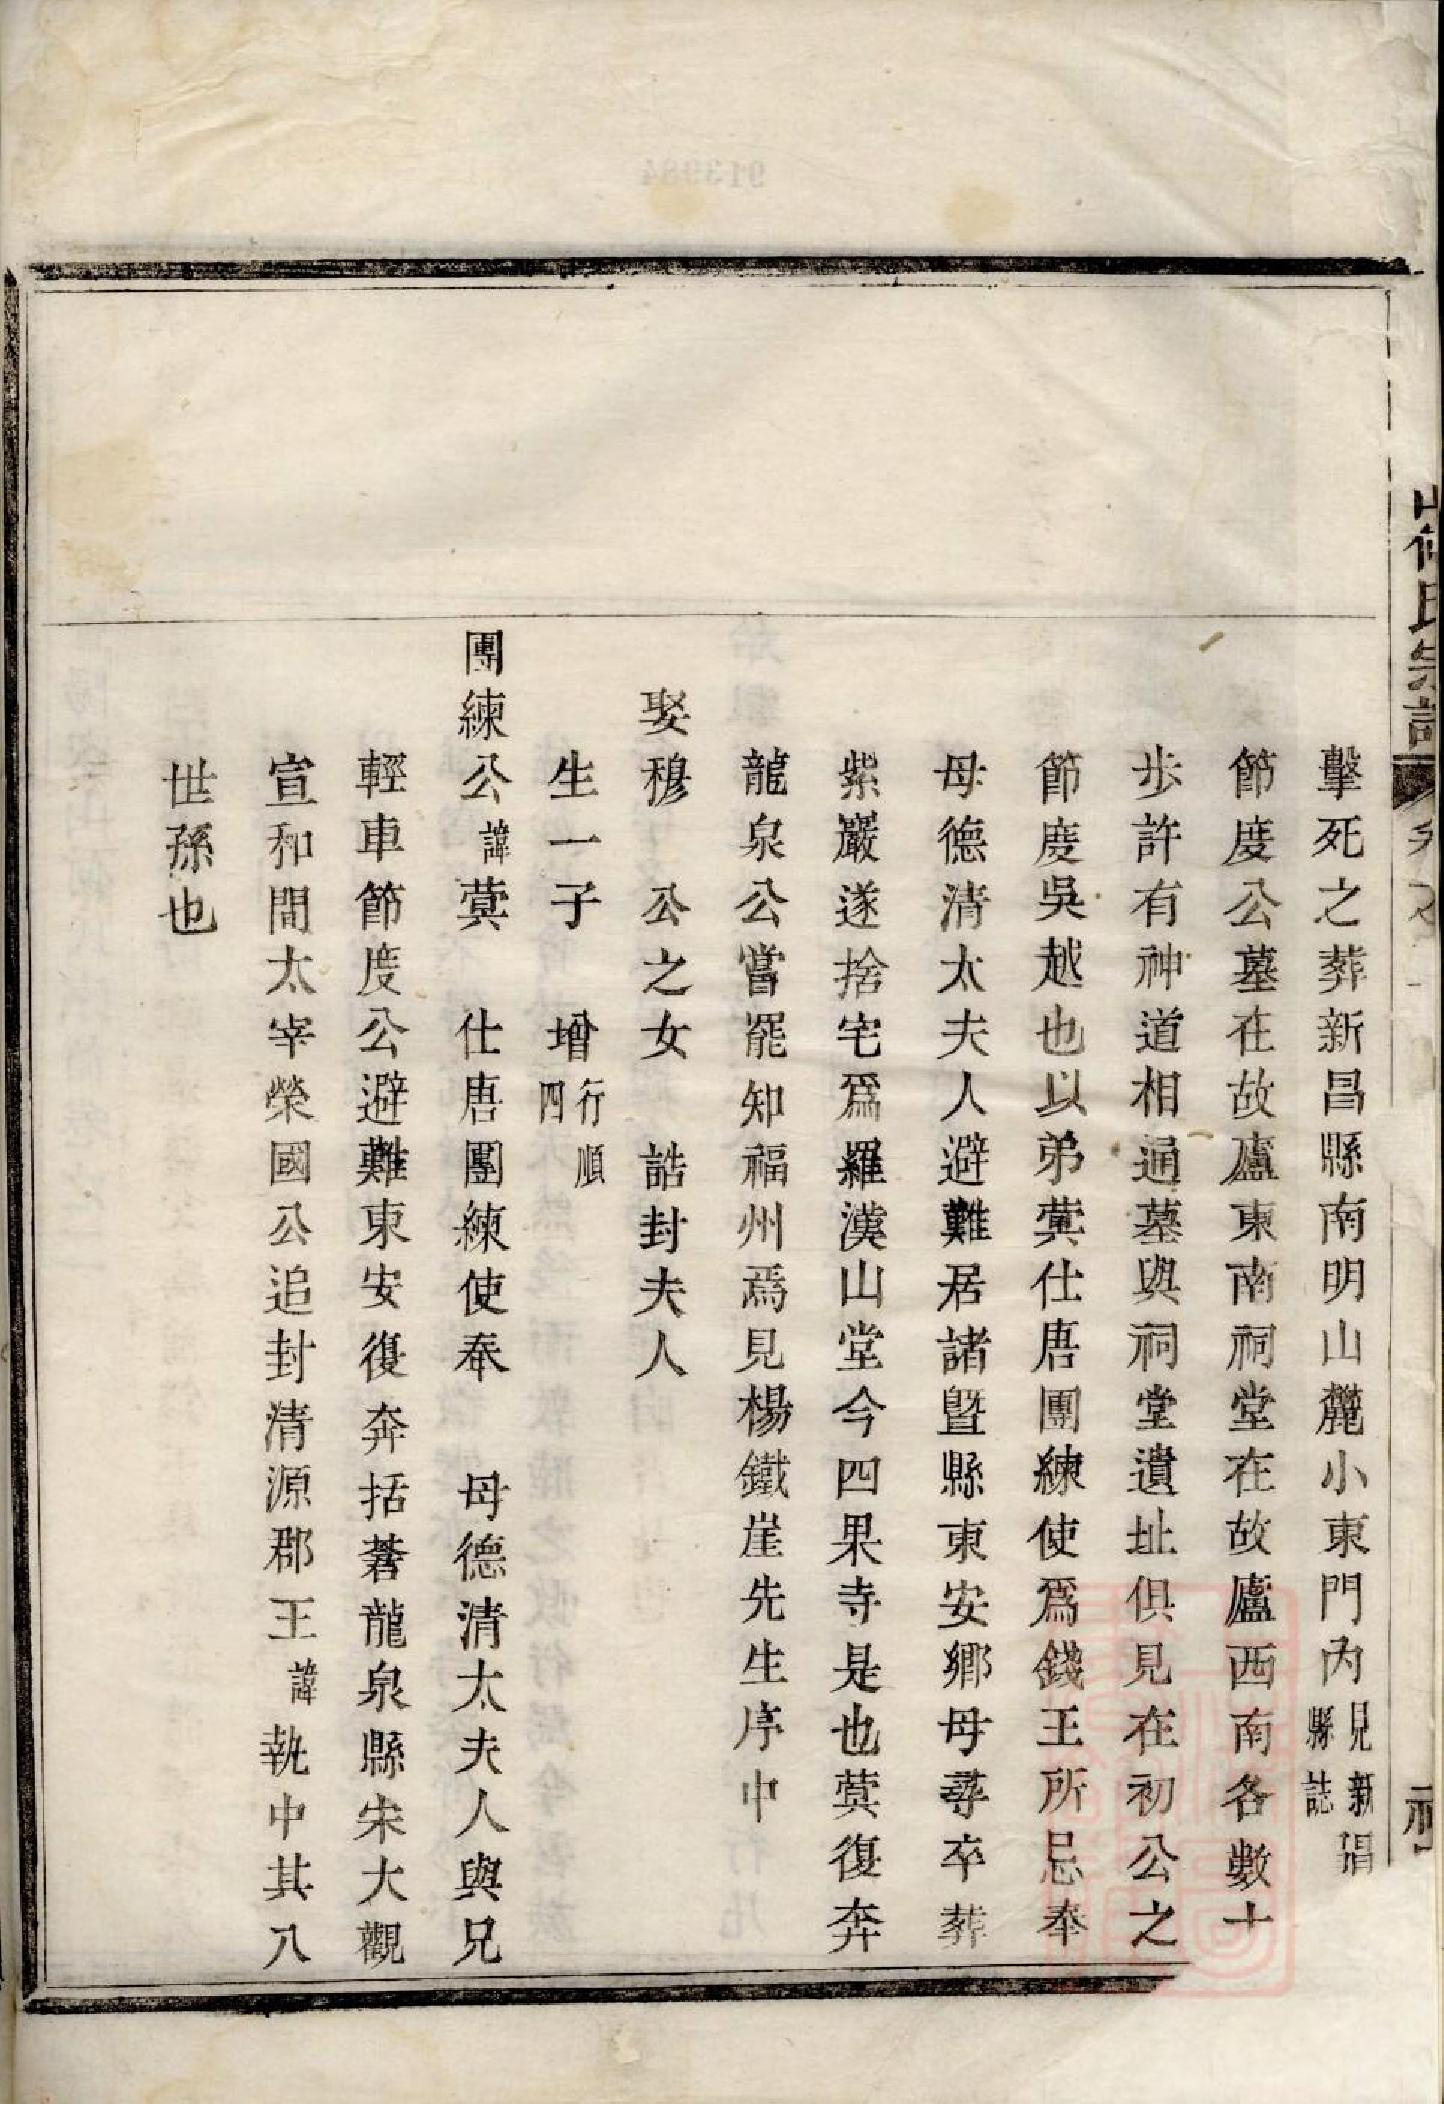 擊死之葬新昌縣南明山麓小東門內見新昌縣誌
節度公墓在故廬東南祠堂在故廬西南各數十
步許有神道相通墓與祠堂遺址俱見在初公之
節度吳越也以弟蓂仕唐團練使爲錢王所忌奉
母德清太夫人避難居諸暨縣東安鄉母尋卒葬
紫巖遂捨宅爲羅漢山堂今四果寺是也蓂復奔
龍泉公嘗罷知福州焉見楊鐵崖先生序中
娶穆 公之女 誥封夫人
生一子 增行順四
團練公諱蓂 仕唐團練使奉 母德清太夫人與兄
輕車節度公避難東安復奔括蒼龍泉縣宋大觀
宣和間太宰榮國公追封清源郡王諱執中其八
世孫也